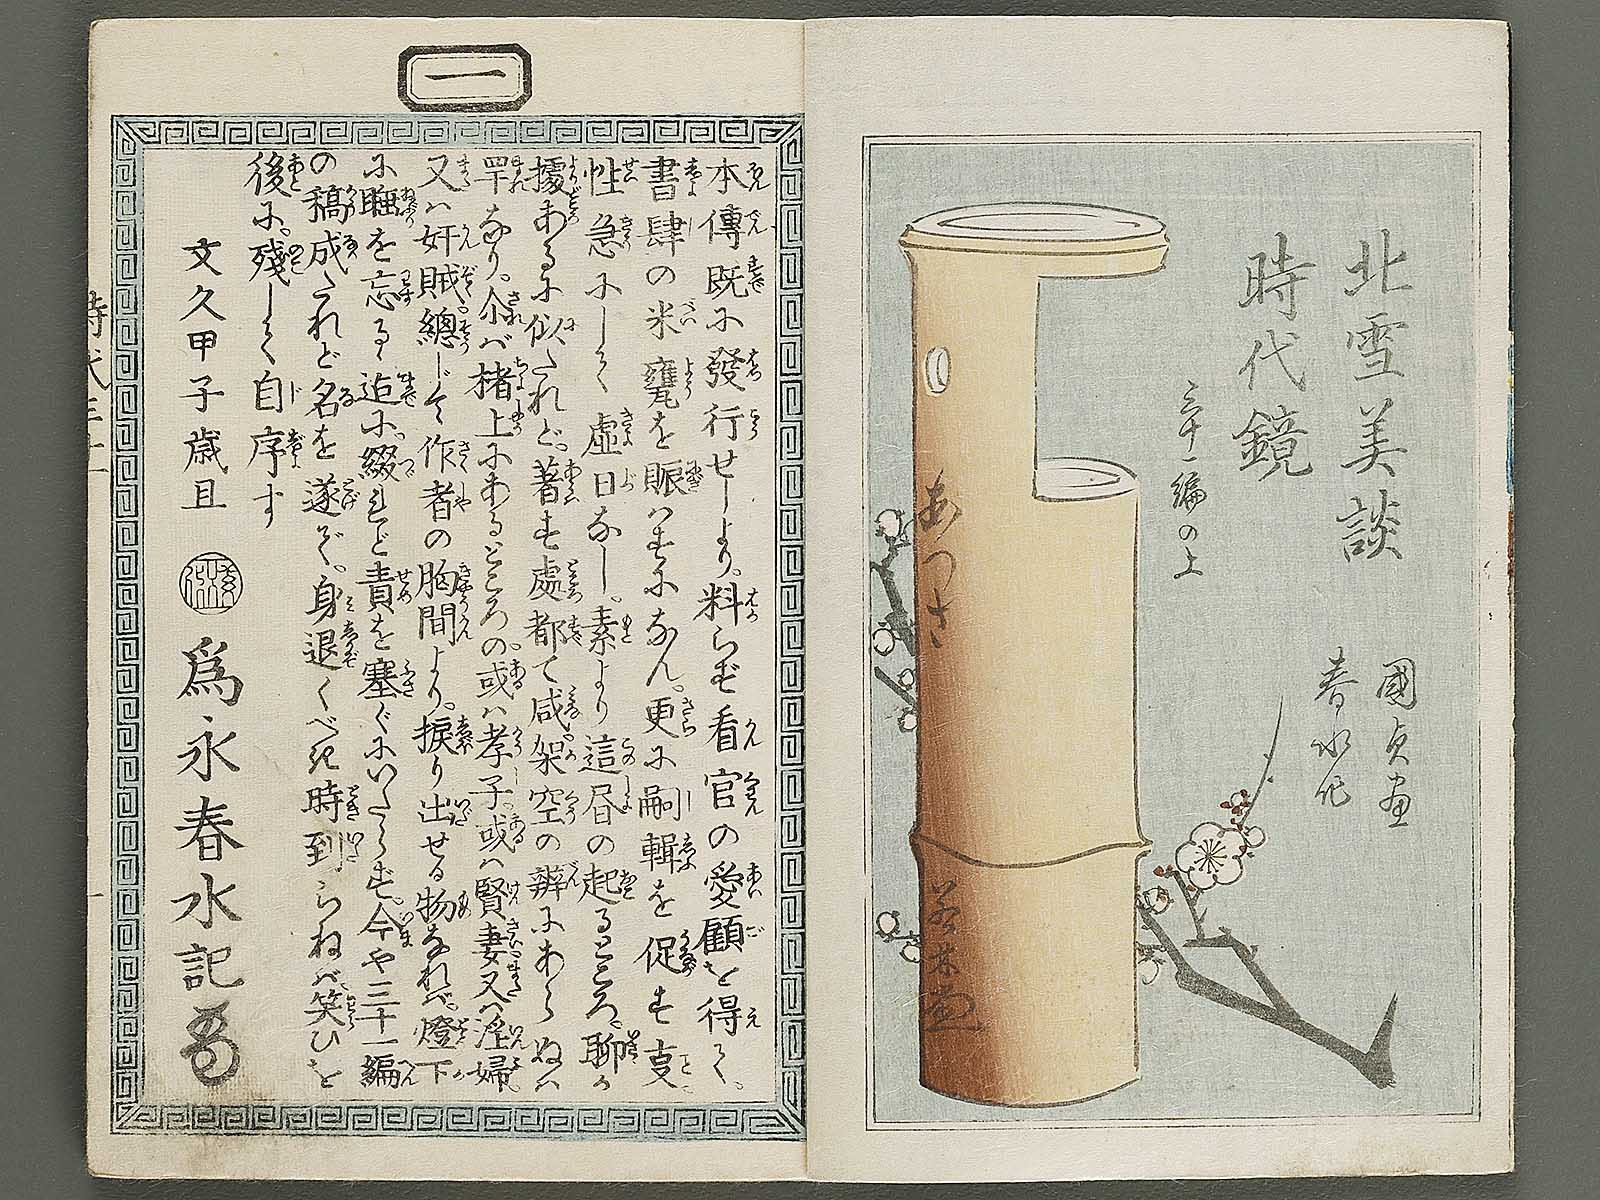 北雪美談
時代鏡
三十一編の上
國貞画
春水作
あつさ
若林堂
一
本傳既に發行せしより。料らず看官の愛顧を得て。
書肆の米甕を賑はすになん。更に嗣輯を促す事
性急にして虚日なし。素より這昼の起るところ。聊か
據あるに似たれど。著す處都て咸架空の辨にあらぬは
罕なり。介れば楮上にあるところの。或は孝子。或は賢妻又は淫婦
又は奸賊。總じて作者の胸間より。捩り出せる物なれば。燈下
に睡を忘るゝ迠に。綴れど責を塞ぐにいたらず。今や三十一編
の稿成たれど名を遂ず。身退くべき時到らねば笑ひを
後に。殘して自序す
文久甲子歳旦
爲永春水記